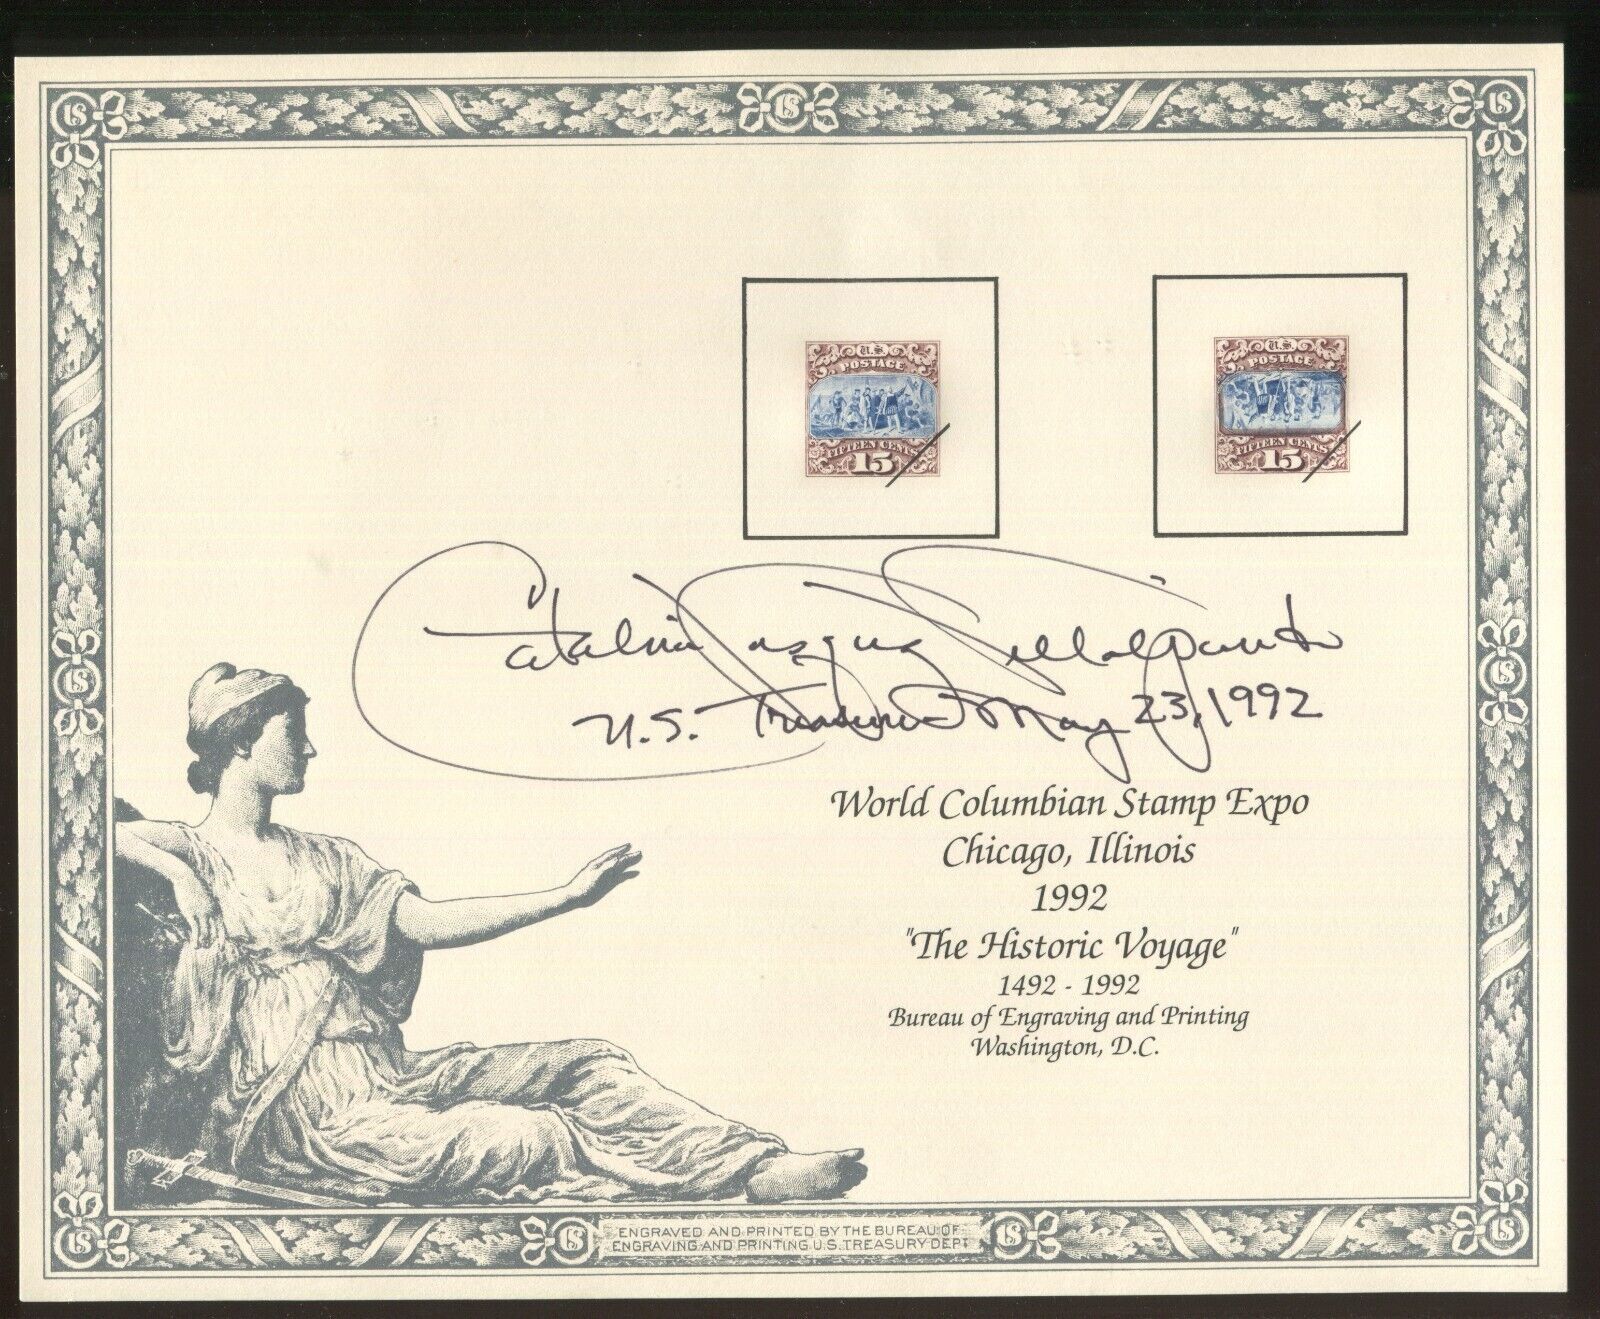 U.S.
POSTAGE
FIFTEEN CENTS
15
U.S.
POSTAGE
FIFTEEN CENTS
15
Catalina Vasquez Villalpando
U.S. Treasurer May 23, 1992
World Columbian Stamp Expo
Chicago, Illinois
1992
"The Historic Voyage"
1492 - 1992
Bureau of Engraving and Printing
Washington, D.C.
ENGRAVED AND PRINTED BY THE BUREAU OF
ENGRAVING AND PRINTING U.S. TREASURY DEPT